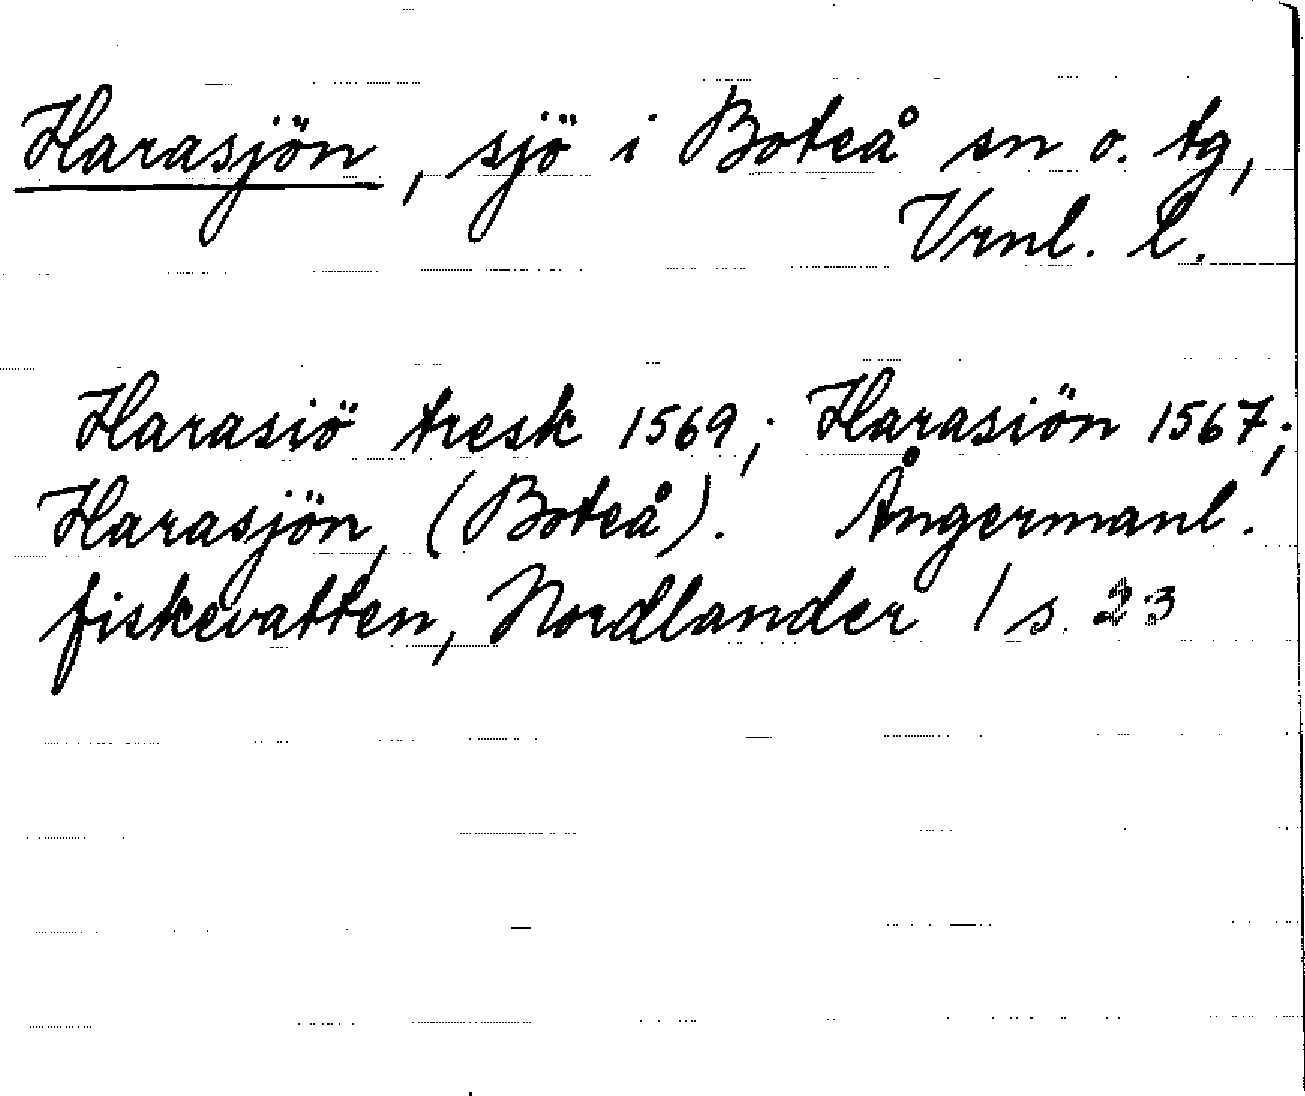 Harasjön, sjö i Boteå sn o. tg,
Vrnl. l.
Harasiö tresk 1569; Harasiön 1567;
Harasjön, (Boteå). Ångermanl.
fiskevatten, Nordlander / s. 23